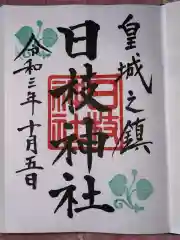 皇城之鎮
日枝神社
令和三年十月五日
日枝神社